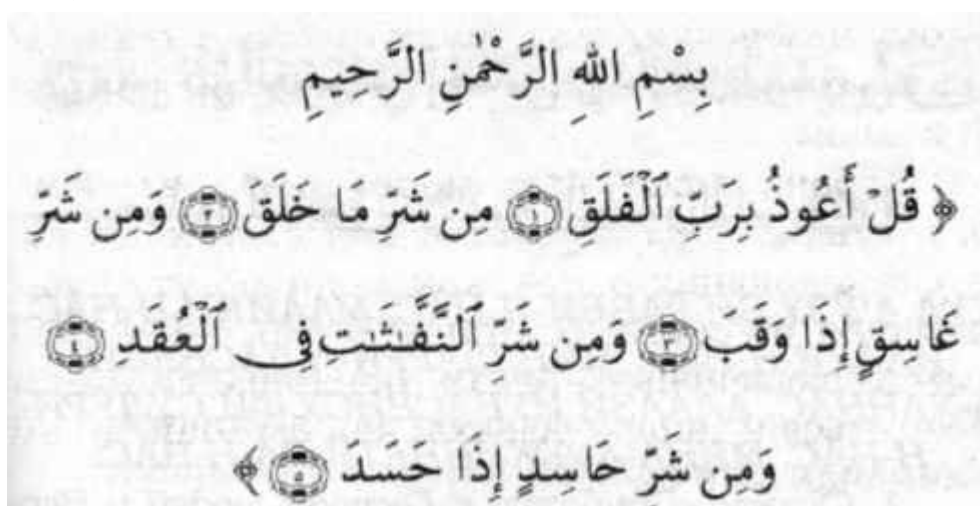 بِسْمِ اللهِ الرَّحْمٰنِ الرَّحِيمِ
﴿ قُلْ أَعُوذُ بِرَبِّ ٱلْفَلَقِ ۝١ مِن شَرِّ مَا خَلَقَ ۝٢ وَمِن شَرِّ
غَاسِقٍ إِذَا وَقَبَ ۝٣ وَمِن شَرِّ ٱلنَّفَّـٰثَـٰتِ فِى ٱلْعُقَدِ ۝٤
وَمِن شَرِّ حَاسِدٍ إِذَا حَسَدَ ۝٥ ﴾